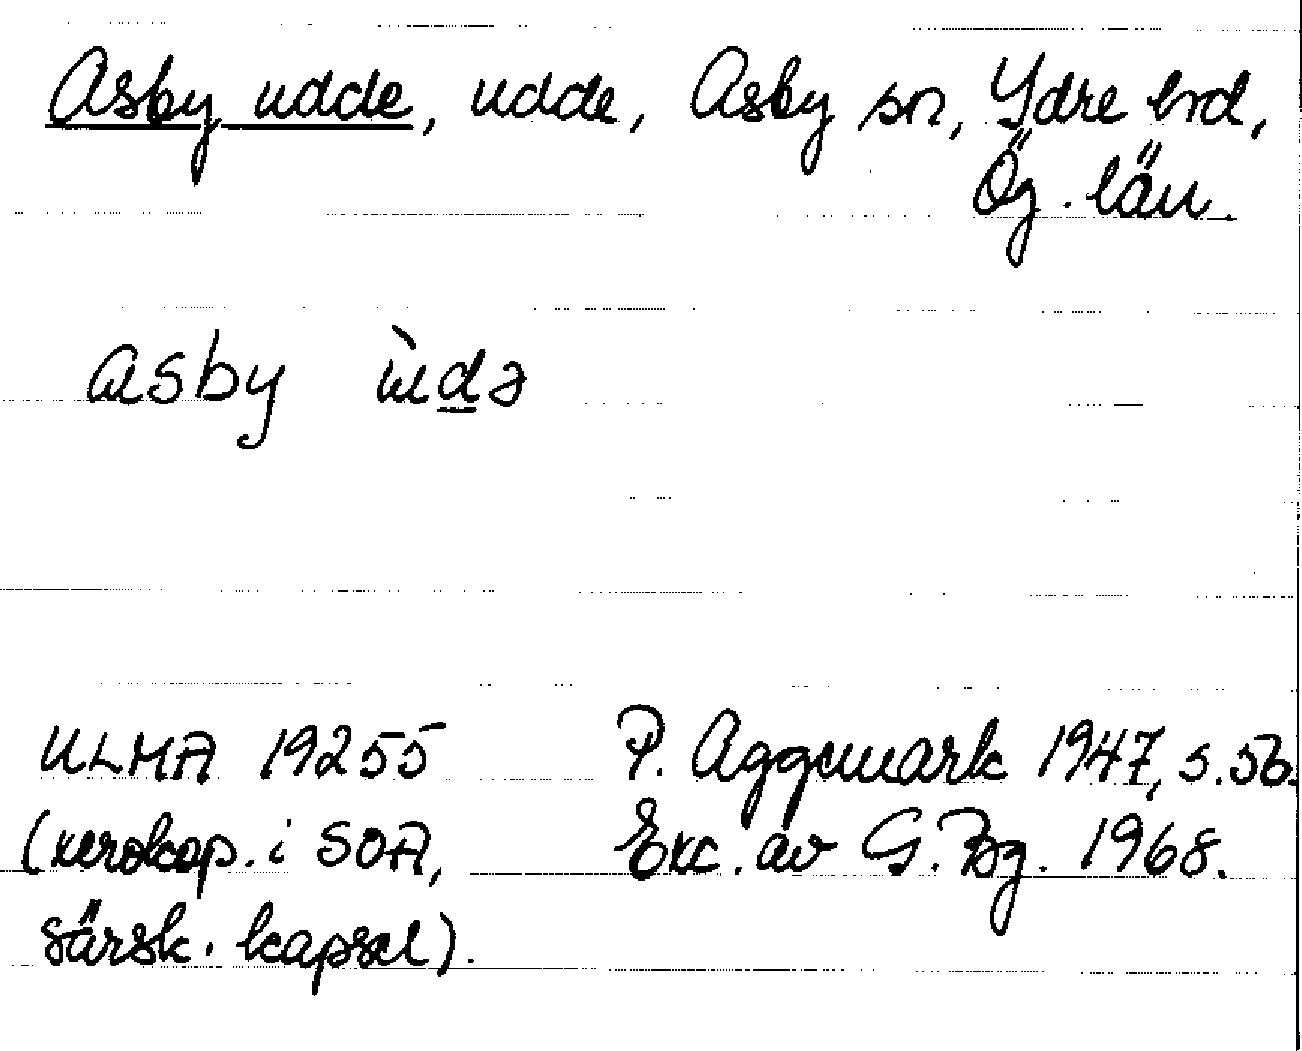 Asby udde, udde, Asby sn, Ydre hd,
Ög. län.
asby ùdə
ULMA 19255
(xerokop. i SOA,
särsk. kapsel).
P. Aggemark 1947, s. 56.
Exc. av G. Bg. 1968.